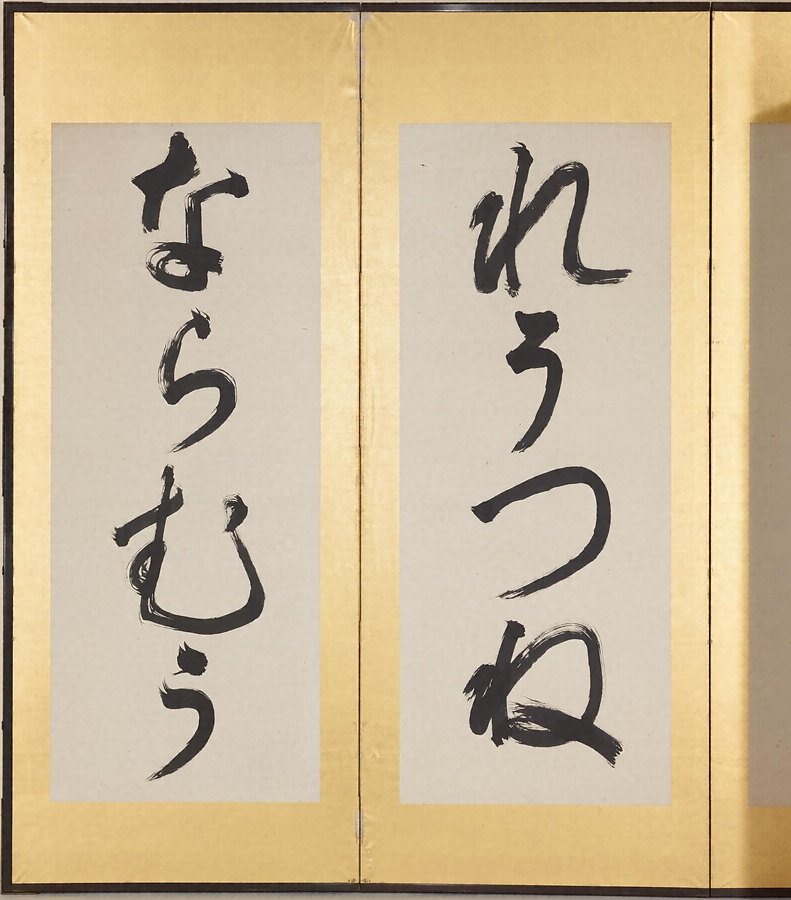 れそつね
ならむう